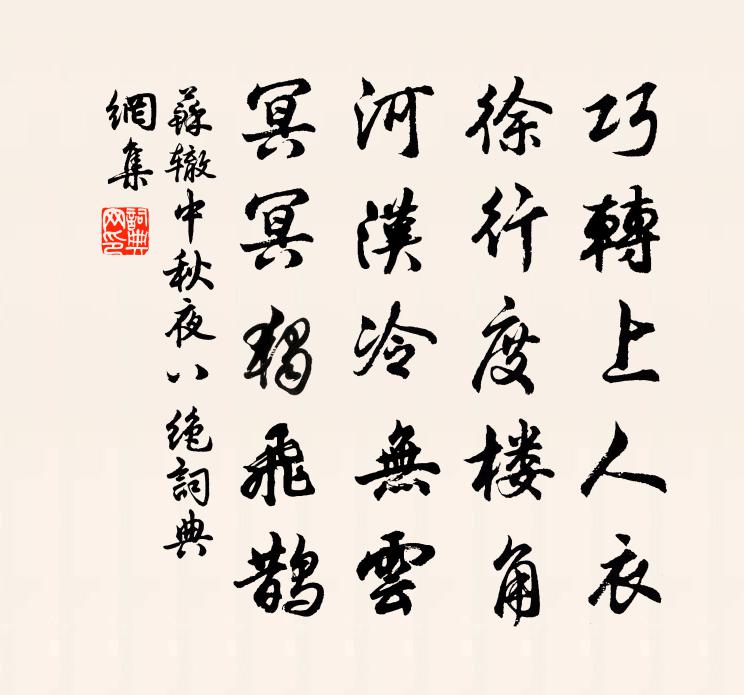 巧轉上人衣
徐行度楼角
河漢冷無雲
冥冥獨飛鵲
蘇辙中秋夜八绝詞典
網集
詞典网印